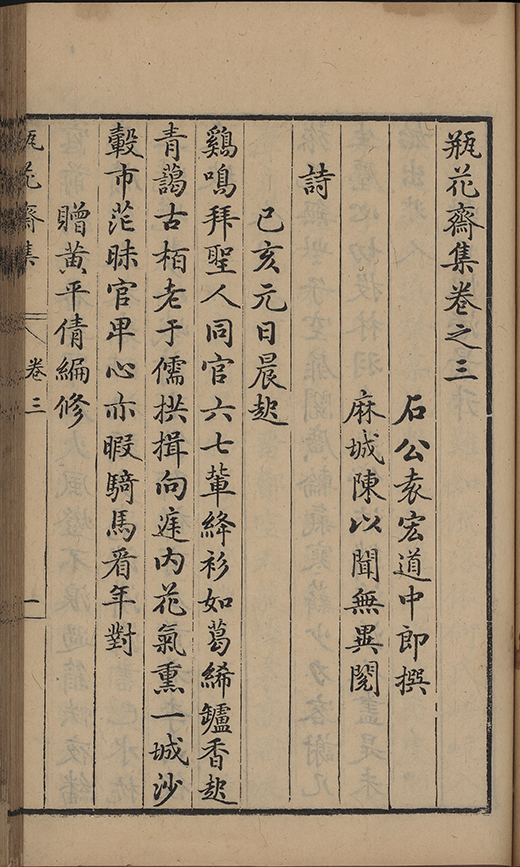 瓶花齋集卷之三
石公袁宏道中郎撰
麻城陳以聞無異閱
詩
己亥元日晨起
鷄鳴拜聖人同官六七輩絳衫如葛絺鑪香起
青藹古栢老于儒拱揖向庭内花氣熏一城沙
轂市茫昧官卑心亦暇騎馬看年對
贈黃平倩編修
瓶花齋集
卷三
一